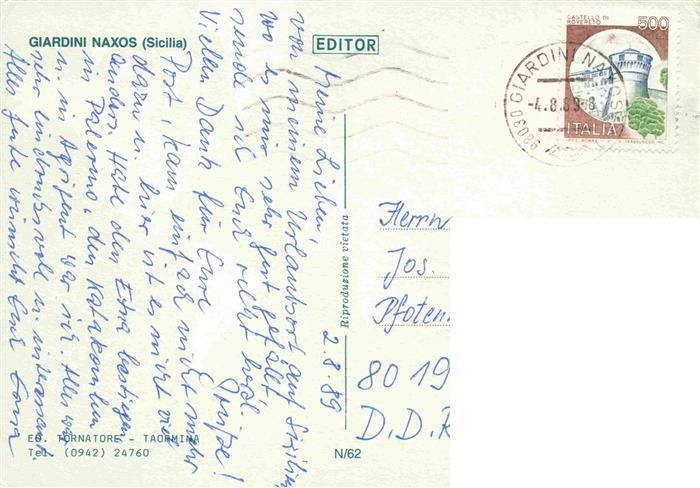 GIARDINI NAXOS (Sicilia)
EDITOR
CASTELLO DI
ROVERETO
500
ITALIA
98030 GIARDINI NAXOS
-4.8.89-8
2.8.89
Meine Lieben!
von meinem Urlaubsort auf Sizilien,
wo es mir sehr gut gefällt,
sende ich Euch recht herzl.
Grüße!
Vielen Dank für Eure
Post, kam einfach nicht mehr
dazu u. hier ist es nicht viel
anders. Habe den Etna bestiegen
in Palermo, den Katakomben
u. in Agrigent war ich. Alles war
sehr eindrucksvoll u. interessant.
Alles Gute wünscht Euch
Riproduzione vietata
Herrn
Jos.
Pfoten
8019
D.D.R
ED. TORNATORE - TAORMINA
Tel. (0942) 24760
N/62